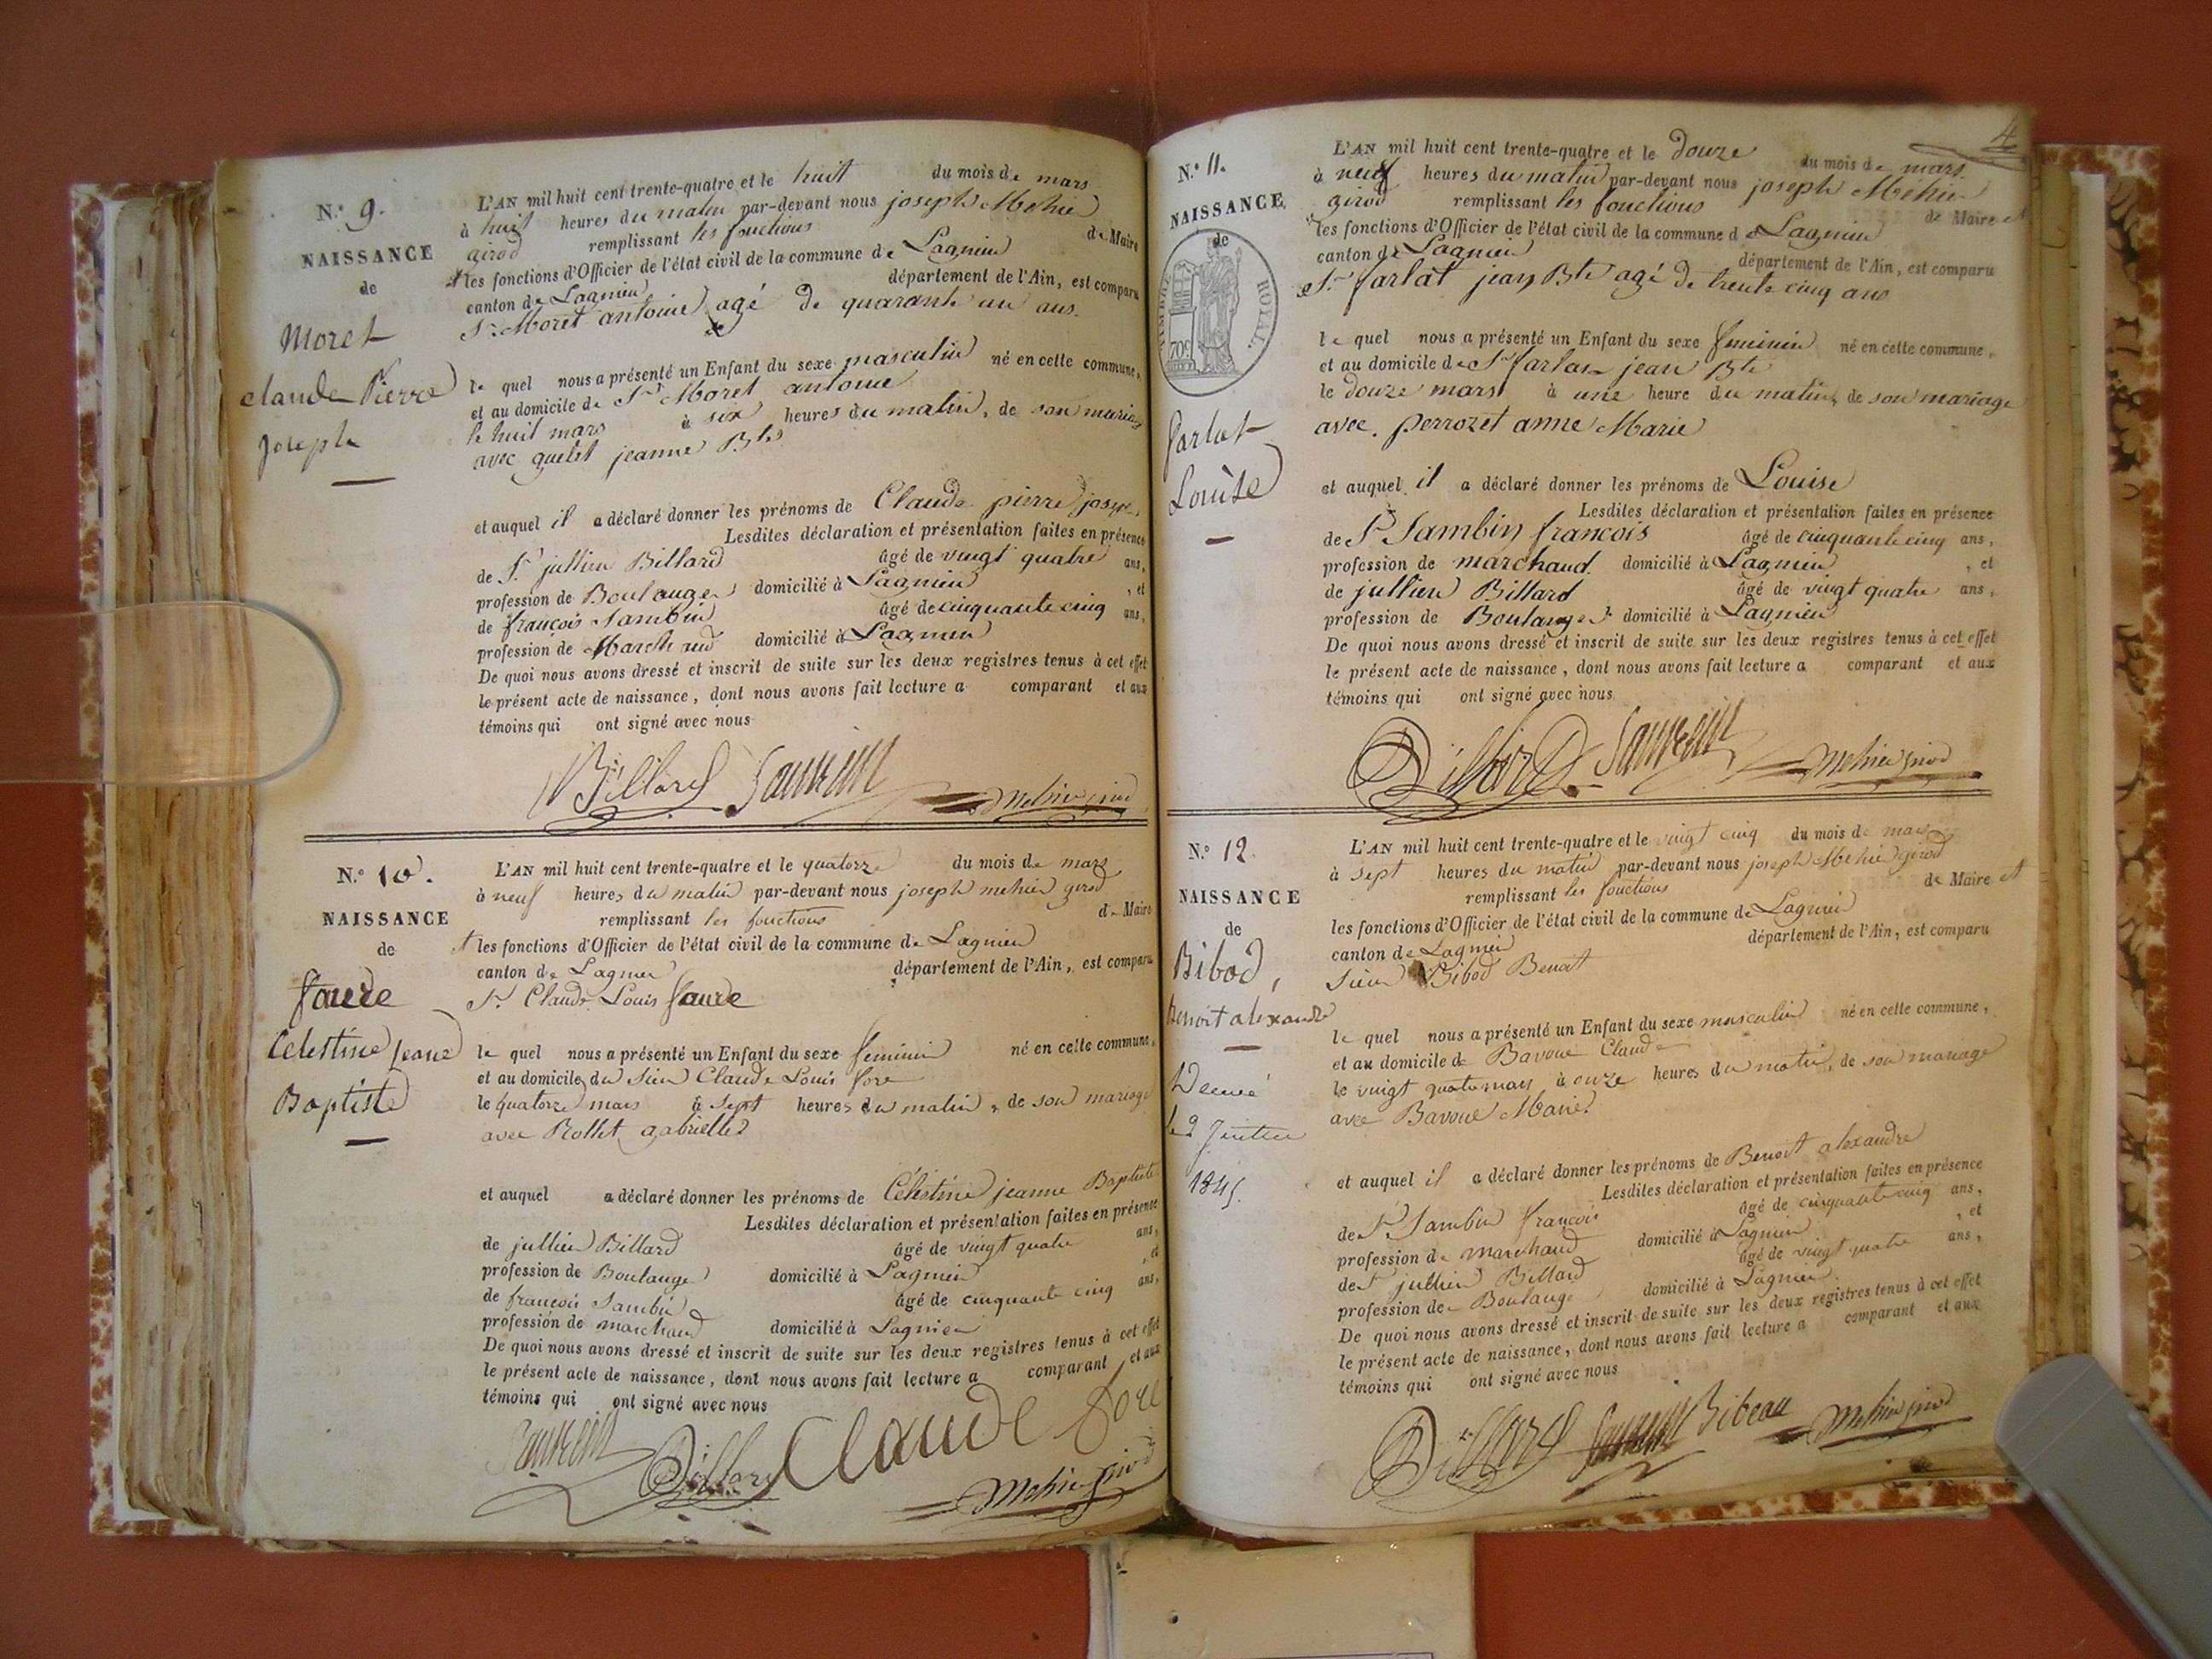 N.° 9.
NAISSANCE
de
Moret
Claude Pierre
Joseph
L'AN mil huit cent trente-quatre et le huit du mois de mars
à huit heures du matin par-devant nous joseph Mehier
girod remplissant les fonctions de Maire
et les fonctions d'Officier de l'état civil de la commune de Lagnieu
canton de Lagnieu département de l'Ain, est comparu
Sr. Moret antoine agé de quarante un ans.
le quel nous a présenté un Enfant du sexe masculin né en cette commune,
et au domicile de Sr Moret antoine
le huit mars à six heures du matin, de son mariage
avec quelet jeanne Bte
et auquel il a déclaré donner les prénoms de Claude pierre joseph
Lesdites déclaration et présentation faites en présence
de Sr. jullien Billard âgé de vingt quatre ans,
profession de Boulanger domicilié à Lagnieu, et
de françois Sambin âgé de cinquante cinq ans,
profession de Marchand domicilié à Lagnieu
De quoi nous avons dressé et inscrit de suite sur les deux registres tenus à cet effet
le présent acte de naissance, dont nous avons fait lecture a comparant et aux
témoins qui ont signé avec nous
Billard Mehier girod
N.° 10.
NAISSANCE
de
faure
Celestine Jeane
Baptiste
L'AN mil huit cent trente-quatre et le quatorze du mois de mars
à neuf heures du matin par-devant nous joseph mehier girod
remplissant les fonctions de Maire
et les fonctions d'Officier de l'état civil de la commune de Lagnieu
canton de Lagnieu département de l'Ain, est comparu
Sr. Claude Louis faure
le quel nous a présenté un Enfant du sexe feminin né en cette commune,
et au domicile du Sieur Claude Louis fore
le quatorze mars à sept heures du matin, de son mariage
avec Rollet gabrielle
et auquel a déclaré donner les prénoms de Célestine jeanne Baptiste
Lesdites déclaration et présentation faites en présence
de jullien Billard âgé de vingt quatre ans,
profession de Boulanger domicilié à Lagnieu, et
de françois Sambin âgé de cinquante cinq ans,
profession de marchand domicilié à Lagnieu
De quoi nous avons dressé et inscrit de suite sur les deux registres tenus à cet effet
le présent acte de naissance, dont nous avons fait lecture a comparant et aux
témoins qui ont signé avec nous
Billard Claude fore
Mehier girod
4
N.° 11.
NAISSANCE
de
TIMBRE ROYAL.
70c
farlat
Louise
L'AN mil huit cent trente-quatre et le douze du mois de mars
à neuf heures du matin par-devant nous joseph Mehier
girod remplissant les fonctions de Maire et
les fonctions d'Officier de l'état civil de la commune de Lagnieu
canton de Lagnieu département de l'Ain, est comparu
Sr. farlat jean Bte agé de trente cinq ans
le quel nous a présenté un Enfant du sexe feminin né en cette commune,
et au domicile de Sr farlat jean Bte
le douze mars à une heure du matin, de son mariage
avec. perrozet anne Marie
et auquel il a déclaré donner les prénoms de Louise
Lesdites déclaration et présentation faites en présence
de Sr Sambin francois âgé de cinquante cinq ans,
profession de marchand. domicilié à Lagnieu, et
de jullien Billard âgé de vingt quatre ans,
profession de Boulanger domicilié à Lagnieu
De quoi nous avons dressé et inscrit de suite sur les deux registres tenus à cet effet
le présent acte de naissance, dont nous avons fait lecture a comparant et aux
témoins qui ont signé avec nous
Billard Mehier girod
N.° 12.
NAISSANCE
de
Bibod,
Benoit alexandre
1845.
L'AN mil huit cent trente-quatre et le vingt cinq du mois de mars
à sept heures du matin par-devant nous joseph Mehier girod
remplissant les fonctions de Maire et
les fonctions d'Officier de l'état civil de la commune de Lagnieu
canton de Lagnieu département de l'Ain, est comparu
Sieur Bibod Benoit
le quel nous a présenté un Enfant du sexe masculin né en cette commune,
et au domicile de Bavoue Claude
le vingt quatre mars à onze heures du matin, de son mariage
avec Bavoue Marie
et auquel il a déclaré donner les prénoms de Benoit alexandre
Lesdites déclaration et présentation faites en présence
de Sr Sambin françois âgé de cinquante cinq ans,
profession de marchand domicilié à Lagnieu, et
de Sr jullien Billard âgé de vingt quatre ans,
profession de Boulanger domicilié à Lagnieu.
De quoi nous avons dressé et inscrit de suite sur les deux registres tenus à cet effet
le présent acte de naissance, dont nous avons fait lecture a comparant et aux
témoins qui ont signé avec nous
Billard Bibeau Mehier girod